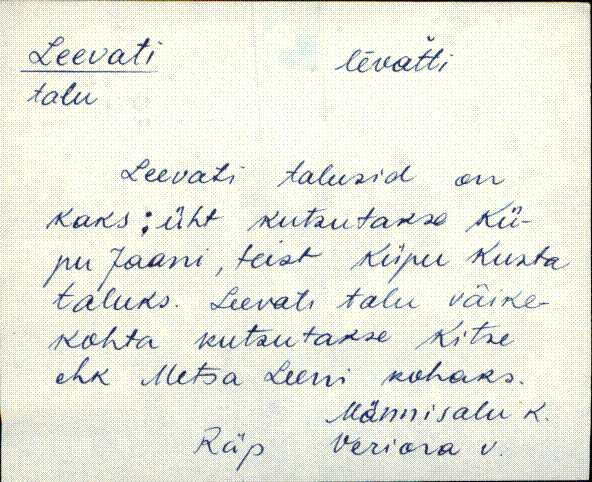 Leevati lēvatti
talu
Leevati talusid on
kaks: üht kutsutakse Kü-
pu Jaani, teist Küpu Kusta
taluks. Leevati talu väike-
kohta kutsutakse Kitse
ehk Metsa Leeni kohaks.
Männisalu k.
Räp Veriora v.